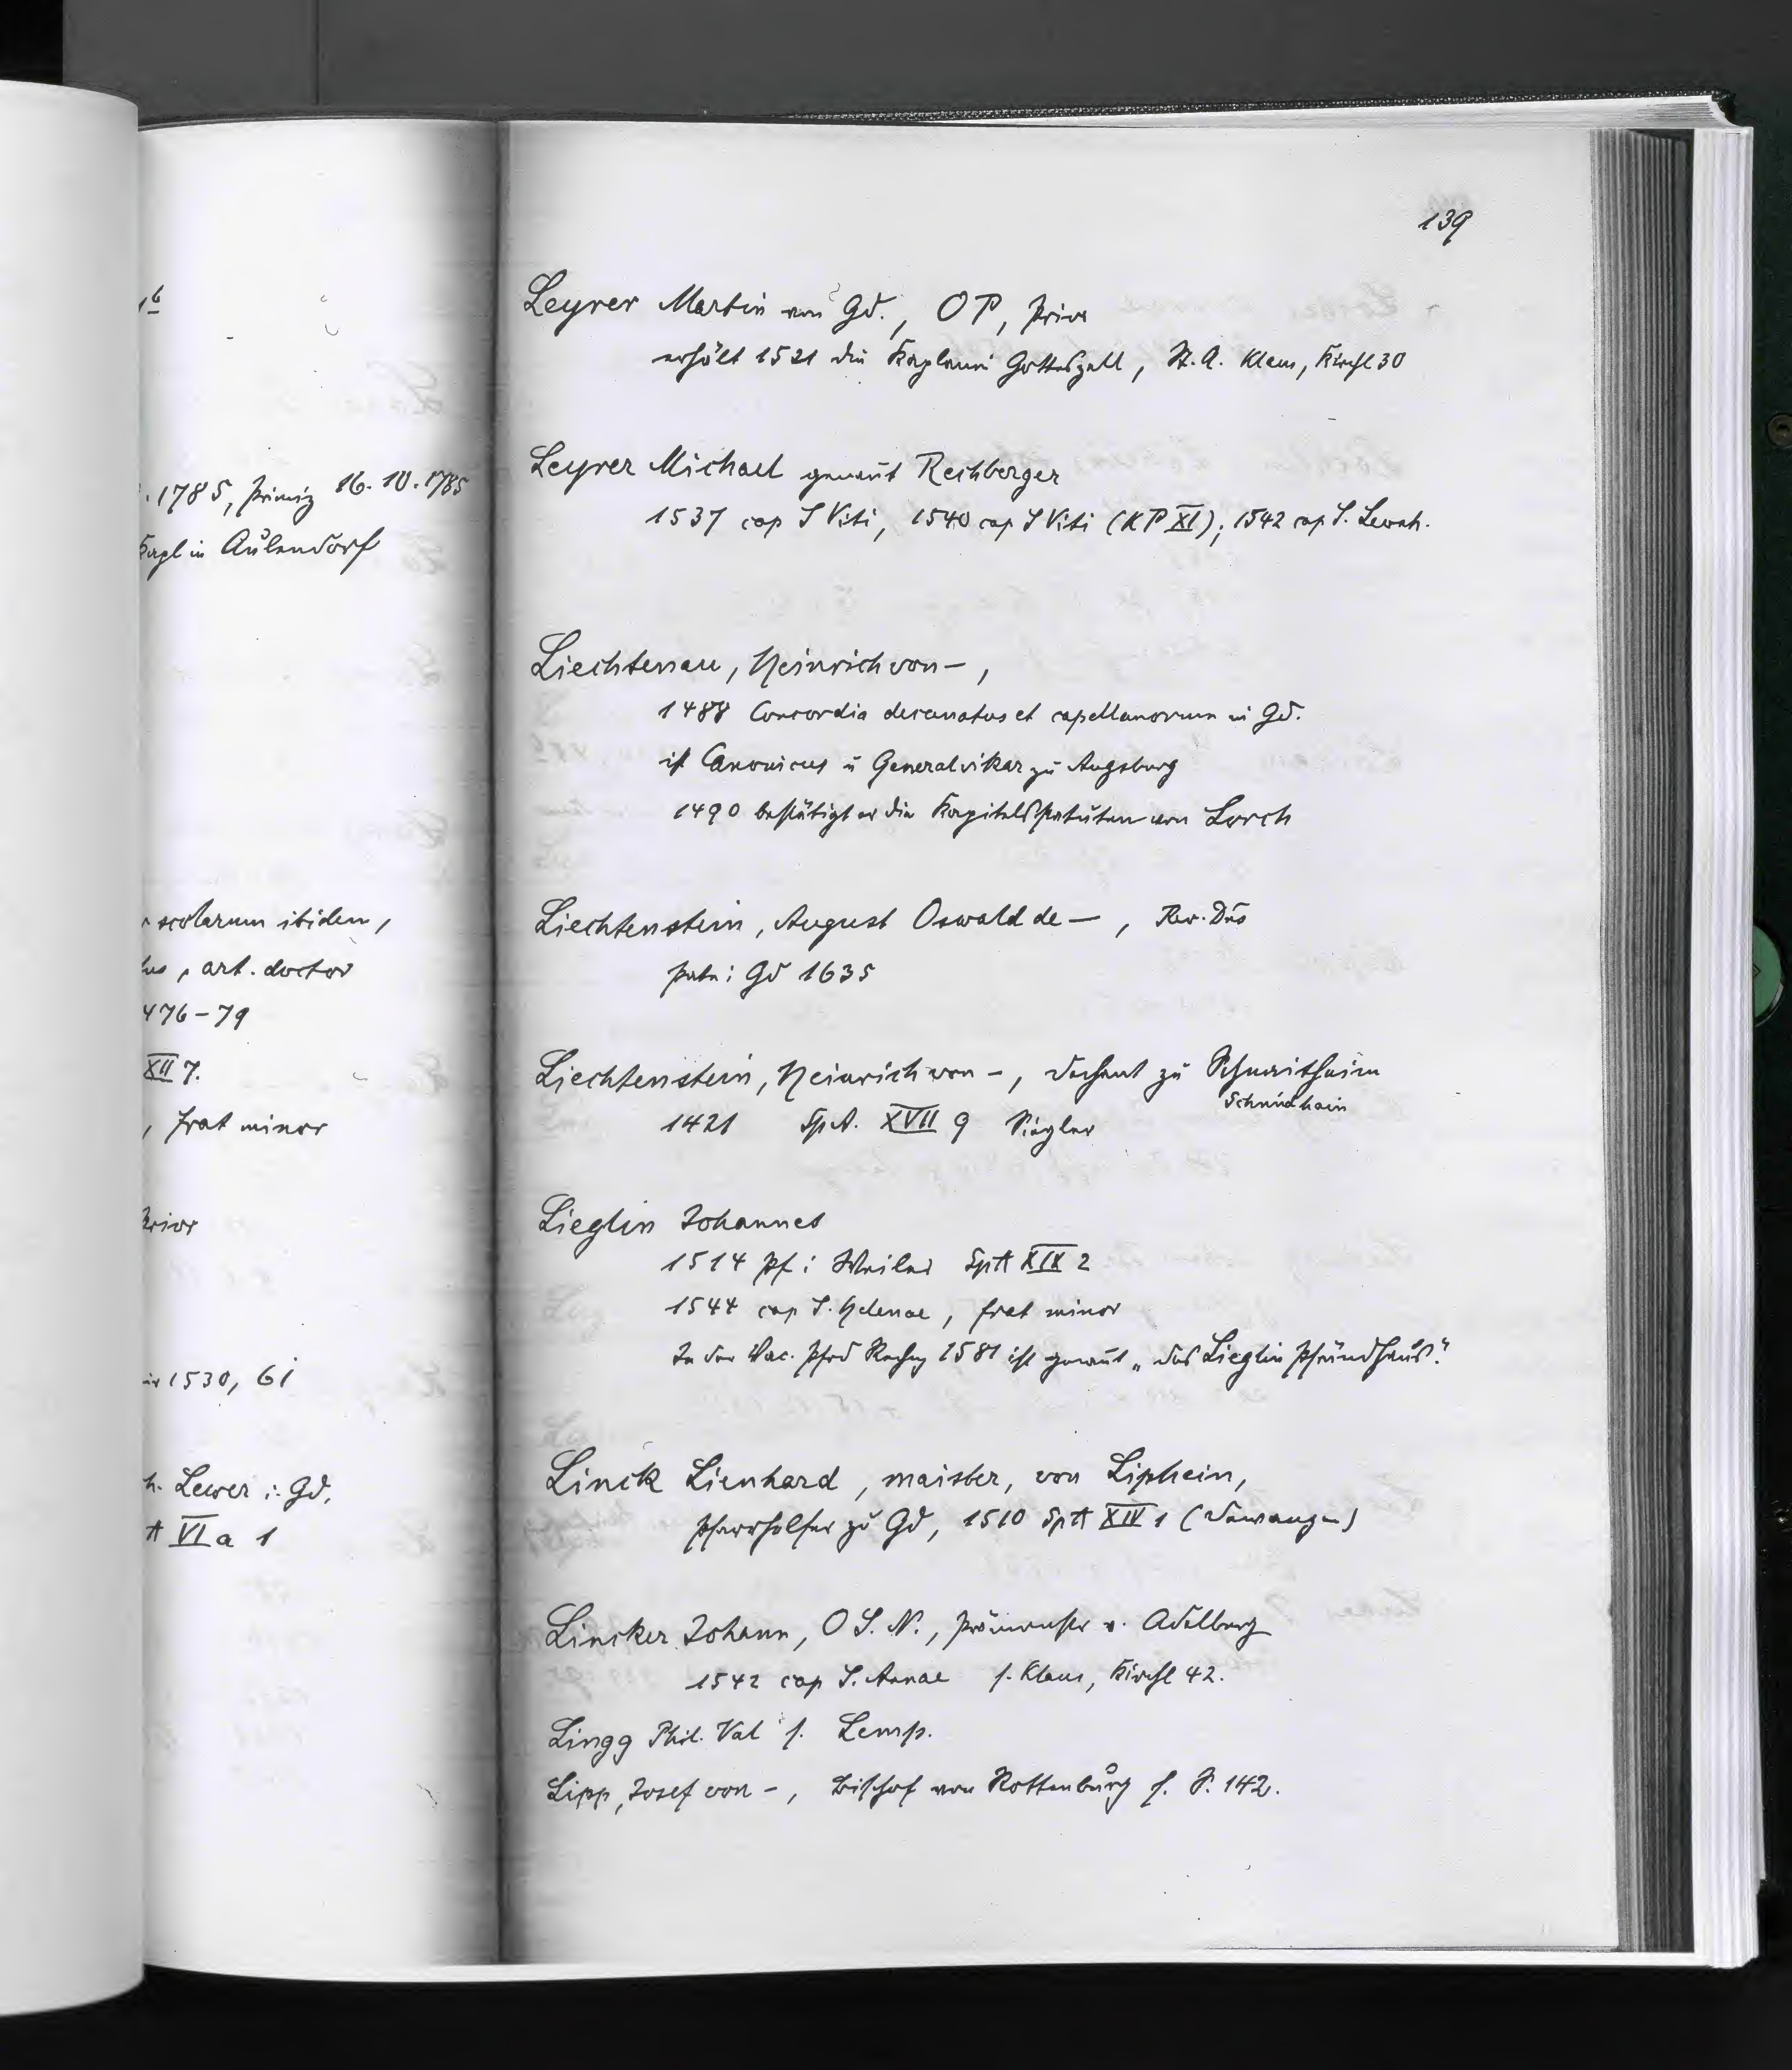 1b
. 1785, Primiz 16.10.1785
Kapl in Aulendorf
scolarum ibidem,
art. doctor
476-79
XII 7.
, frat minor
Prior
1530, 61
h. Lewer i. Gd.
A VI a 1
139
Leyrer Martin von Gd., OP, Prior
erhält 1521 die Kaplanei Gotteszell, St. A. Klaus, Kirchl 30
Leyrer Michael genannt Rechberger
1537 cap S Viti, 1540 cap S Viti (KP XI); 1542 cap S. Leonh.
Liechtenau, Heinrich von -,
1488 Concordia decanatus et capellanorum in Gd.
ist Canonicus u Generalvikar zu Augsburg
1490 bestätigt er die Kapitelsstatuten von Lorch
Liechtenstein, August Oswald de -, Rev. Dns
Pate i Gd 1635
Liechtenstein, Heinrich von -, Dechant zu Schnaitheim
Schnidhain
1421 SpA. XVII 9 Siegler
Lieglin Johannes
1514 Pf i Weiler SptA XIX 2
1544 cap S. Helenae, frat minor
In der Vac. Pfrd Rechng 1581 ist genannt „das Lieglin Pfründhaus".
Linck Lienhard, maister, von Liphein,
Pfarrhelfer zu Gd, 1510 SptA XIV 1 (Dewangen)
Lincker Johann, O S. N., Prämonstr v. Adelberg
1542 cap S. Annae s. Klaus, Kirchl 42.
Lingg Phil. Val s. Lemp.
Lipp, Josef von -, Bischof von Rottenburg s. S. 142.